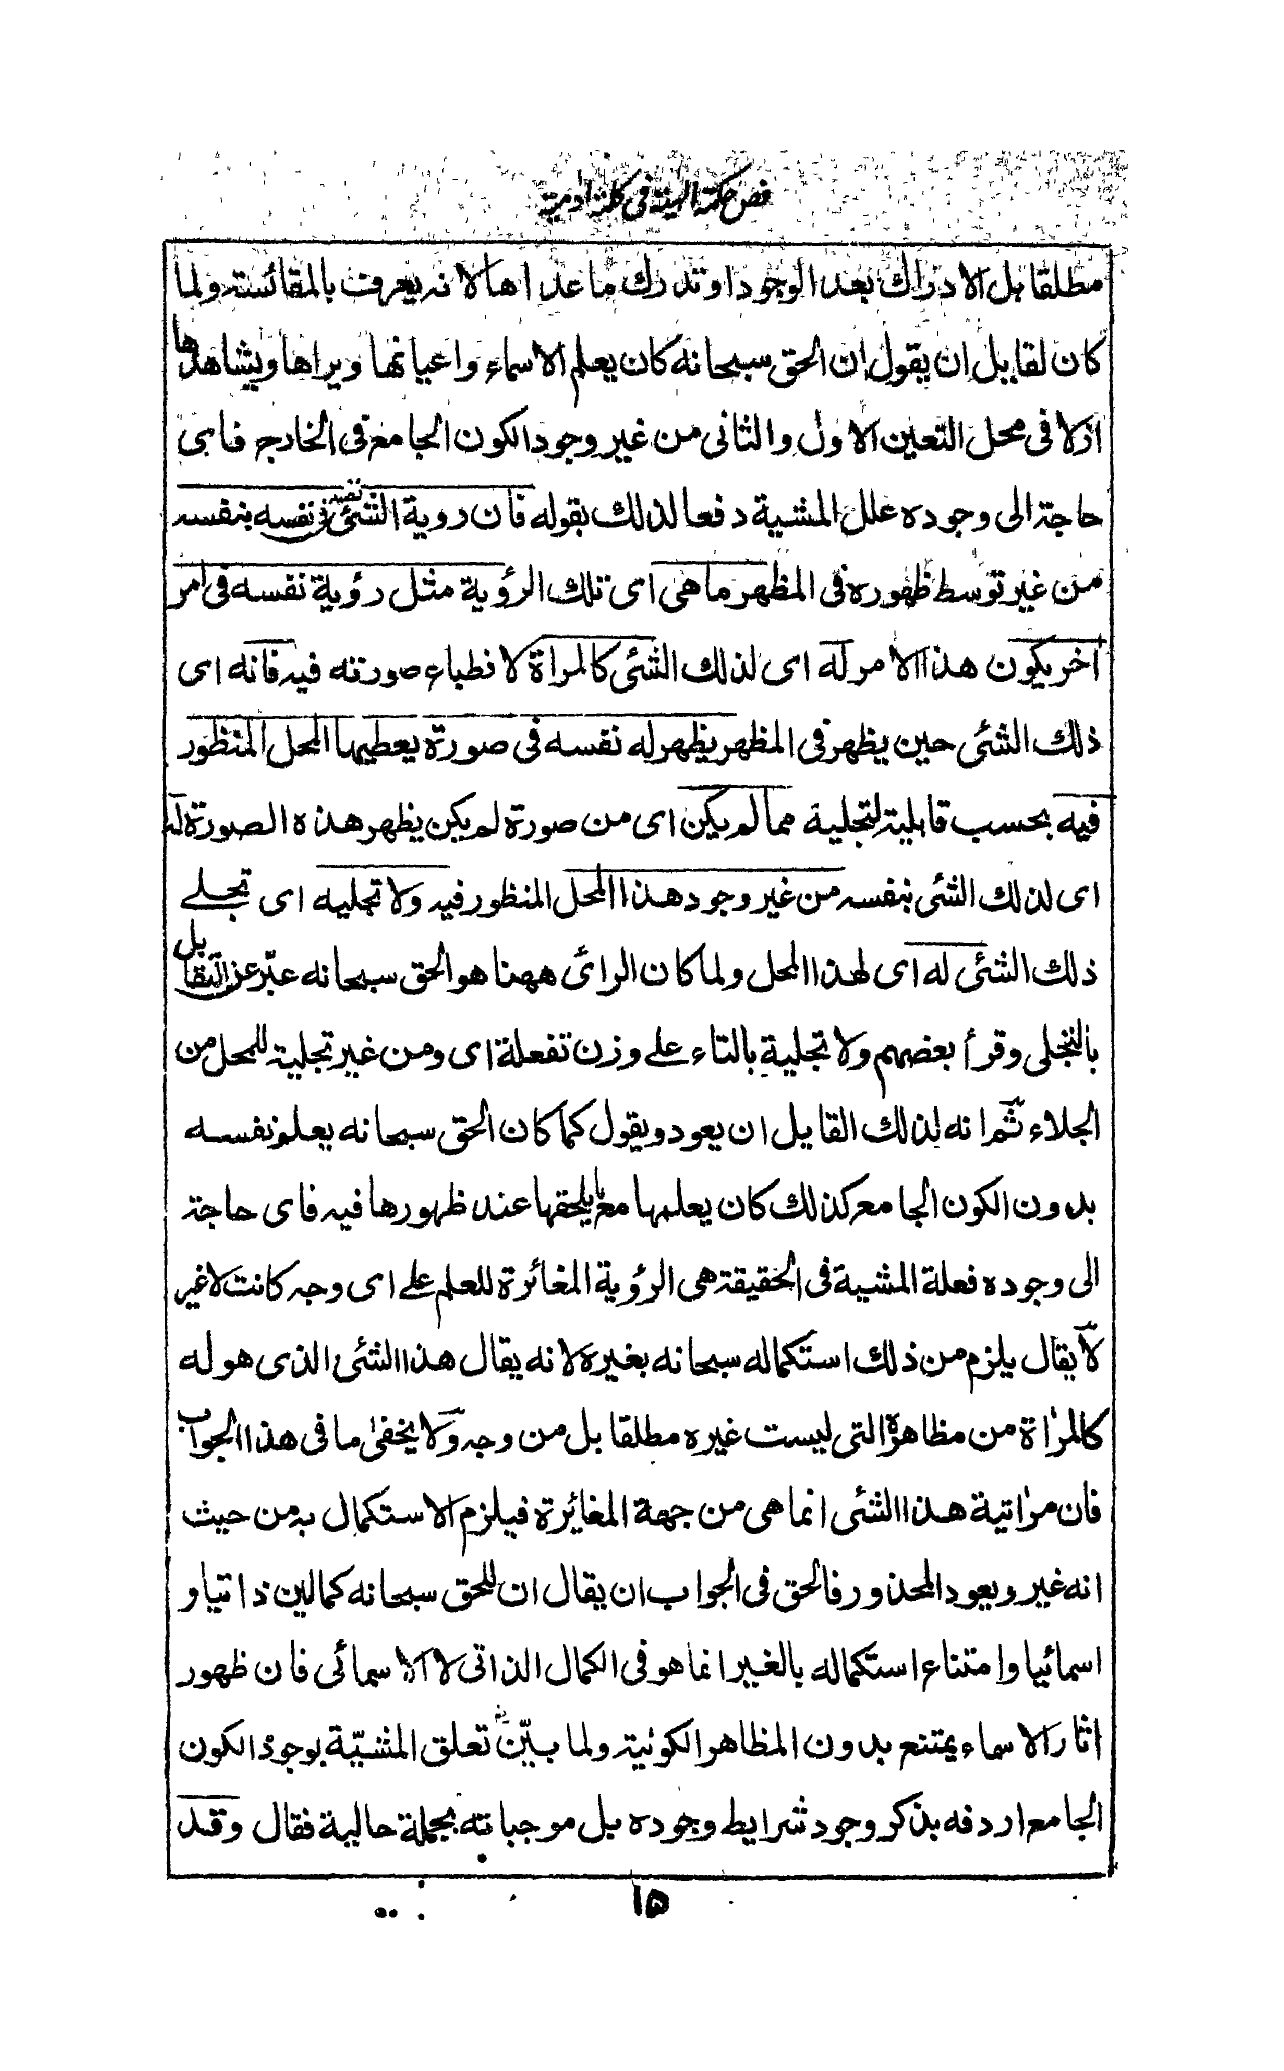 فص حكمة الهية فى كلمة ادمية
مطلقا بل الادراك بعد الوجود اوتدرك ما عداها لانه يعرف بالمقائسته ولما
كان لقايل ان يقول ان الحق سبحانه كان يعلم الاسماء واعيانها ويراها ويشاهدها
ازلا فى محل التعين الاول والثانى من غير وجود الكون الجامع فى الخارج فاى
حاجة الى وجوده علل المشية دفعا لذلك بقوله فان روية الشئى نفسه فى نفسه بنفسه
من غير توسط ظهوره فى المظهر ما هى اى تلك الرؤية مثل رؤية نفسه فى امر
اخر يكون هذا الامر له اى لذلك الشئى كالمراة لانطباع صورته فيه فانه اى
ذلك الشئى حين يظهر فى المظهر يظهر له نفسه فى صورة يعطيها المحل المنظور
فيه بحسب قابلية لتجلية مما لم يكن اى من صورة لم يكن يظهر هذه الصورة له
اى لذلك الشئى بنفسه من غير وجود هذا المحل المنظور فيه ولا تجليه اى تجلے
ذلك الشئى له اى لهذا المحل ولما كان الرائى ههنا هو الحق سبحانه عبّر عن التقابل
بالتجلى وقرأ بعضهم ولا تجلية بالتاء علے وزن تفعلة اى ومن غير تجلية للمحل من
الجلاء ثم انه لذلك القايل ان يعود ويقول كما كان الحق سبحانه يعلم نفسه
بدون الكون الجامع كذلك كان يعلمها مع ما يلحقها عند ظهورها فيه فاى حاجة
الى وجوده فعلة المشية فى الحقيقة هى الرؤية المغائرة للعلم علے اى وجه كانت لاغير
لا يقال يلزم من ذلك استكماله سبحانه بغيره لانه يقال هذا الشئى الذى هو له
كالمراة من مظاهره التى ليست غيره مطلقا بل من وجه ولا يخفى ما فى هذا الجواب
فان مراتية هذا الشئى انما هى من جهة المغائرة فيلزم الاستكمال به من حيث
انه غير ويعود المحذور فالحق فى الجواب ان يقال ان للحق سبحانه كمالين ذاتيا و
اسمائيا وامتناع استكماله بالغير انما هو فى الكمال الذاتى لا الاسمائى فان ظهور
اثار الاسماء يمتنع بدون المظاهر الكونية ولما بيّن تعلق المشيّة بوجود الكون
الجامع اردفه بذكر وجود شرايط وجوده بل موجباته بجملة حالية فقال وقد
١٥